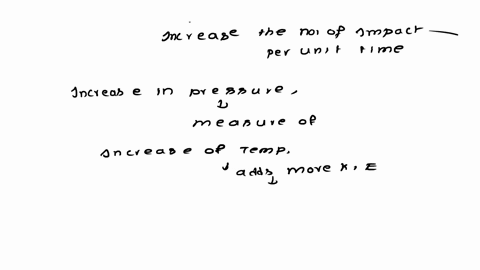 Increase the no: of Impact —
per unit time
Increase in pressure,
↓
measure of
Increase of Temp.
↓ adds more K, E
↓